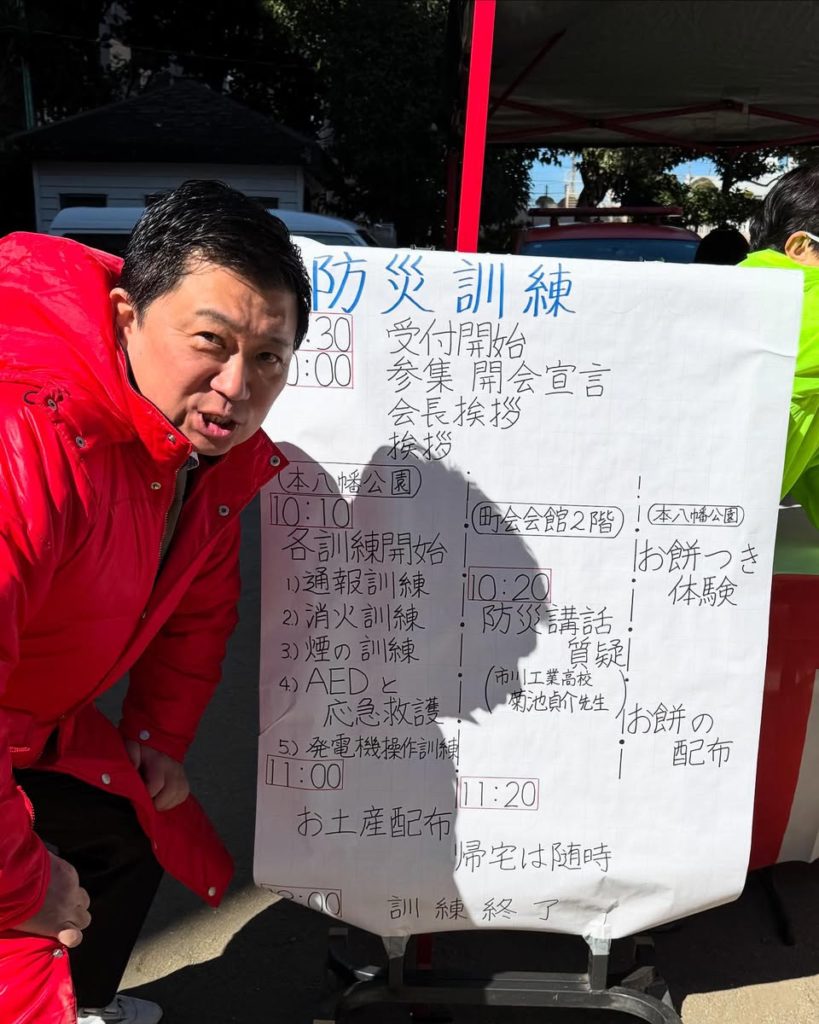 防災訓練
.30 受付開始
:00 参集 開会宣言
会長挨拶
挨拶
(本八幡公園)
10:10
各訓練開始
1) 通報訓練
2) 消火訓練
3) 煙の訓練
4) AEDと
応急救護
5) 発電機操作訓練
11:00
お土産配布
(町会会館2階)
10:20
防災講話
質疑
(市川工業高校
菊池貞介先生)
11:20
帰宅は随時
(本八幡公園)
お餅つき
体験
お餅の
配布
:00 訓練終了